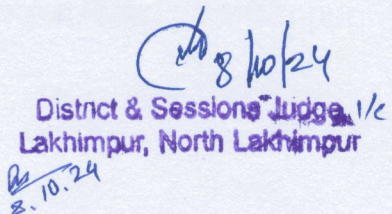 8/10/24
District & Sessions Judge, I/c
Lakhimpur, North Lakhimpur
8.10.24